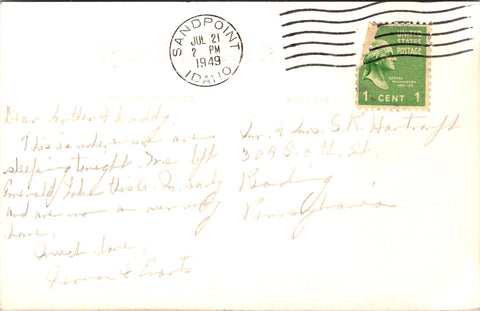 SANDPOINT
JUL 21
2 PM
1949
IDAHO
UNITED
STATES
POSTAGE
GEORGE
WASHINGTON
1 CENT 1
ADDRESS
Dear Mother & Daddy,
This is where we are
sleeping tonight. We left
Emerald Lake this A. M. early
and are now on our way
home.
Much love,
& Evarts
Mr. & Mrs. S. K. Hartraft
309 S. 5th. St.
Reading
Pennsylvania